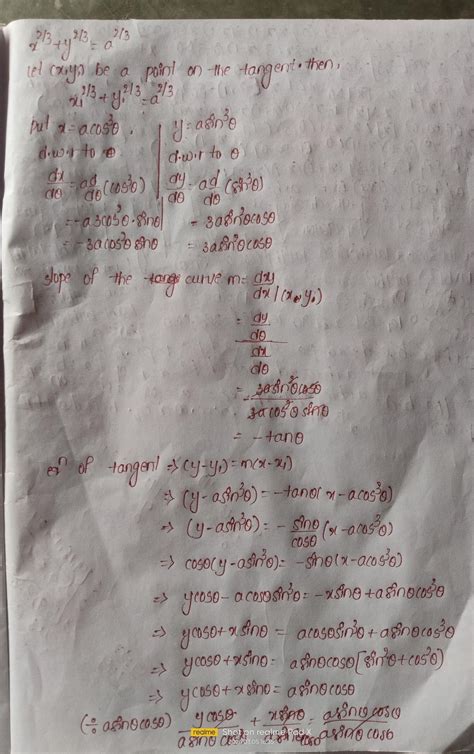 x^2/3 + y^2/3 = a^2/3
Let (x,y) be a point on the tangent. then,
x₁^2/3 + y₁^2/3 = a^2/3
Put x = acos³θ, | y = asin³θ
d.w.r to θ | d.w.r to θ
dx/dθ = a d/dθ (cos³θ) | dy/dθ = a d/dθ (sin³θ)
= -a3cos²θ·sinθ | = 3asin²θcosθ
= -3acos²θsinθ | = 3asin²θcosθ
slope of the curve m = dy/dx | (x₁,y₁)
= dy/dθ / dx/dθ
= - 3asin²θcosθ / 3acos²θsinθ
= -tanθ
eqn of tangent ⇒ (y-y₁) = m(x-x₁)
⇒ (y-asin³θ) = -tanθ(x-acos³θ)
⇒ (y-asin³θ) = - sinθ/cosθ (x-acos³θ)
⇒ cosθ(y-asin³θ) = -sinθ(x-acos³θ)
⇒ ycosθ - acosθsin³θ = -xsinθ + asinθcos³θ
⇒ ycosθ + xsinθ = acosθsin³θ + asinθcos³θ
⇒ ycosθ + xsinθ = asinθcosθ[sin²θ + cos²θ]
⇒ ycosθ + xsinθ = asinθcosθ
(÷ asinθcosθ) ycosθ/asinθcosθ + xsinθ/asinθcosθ = asinθcosθ/asinθcosθ
realme Shot on realme Pad X